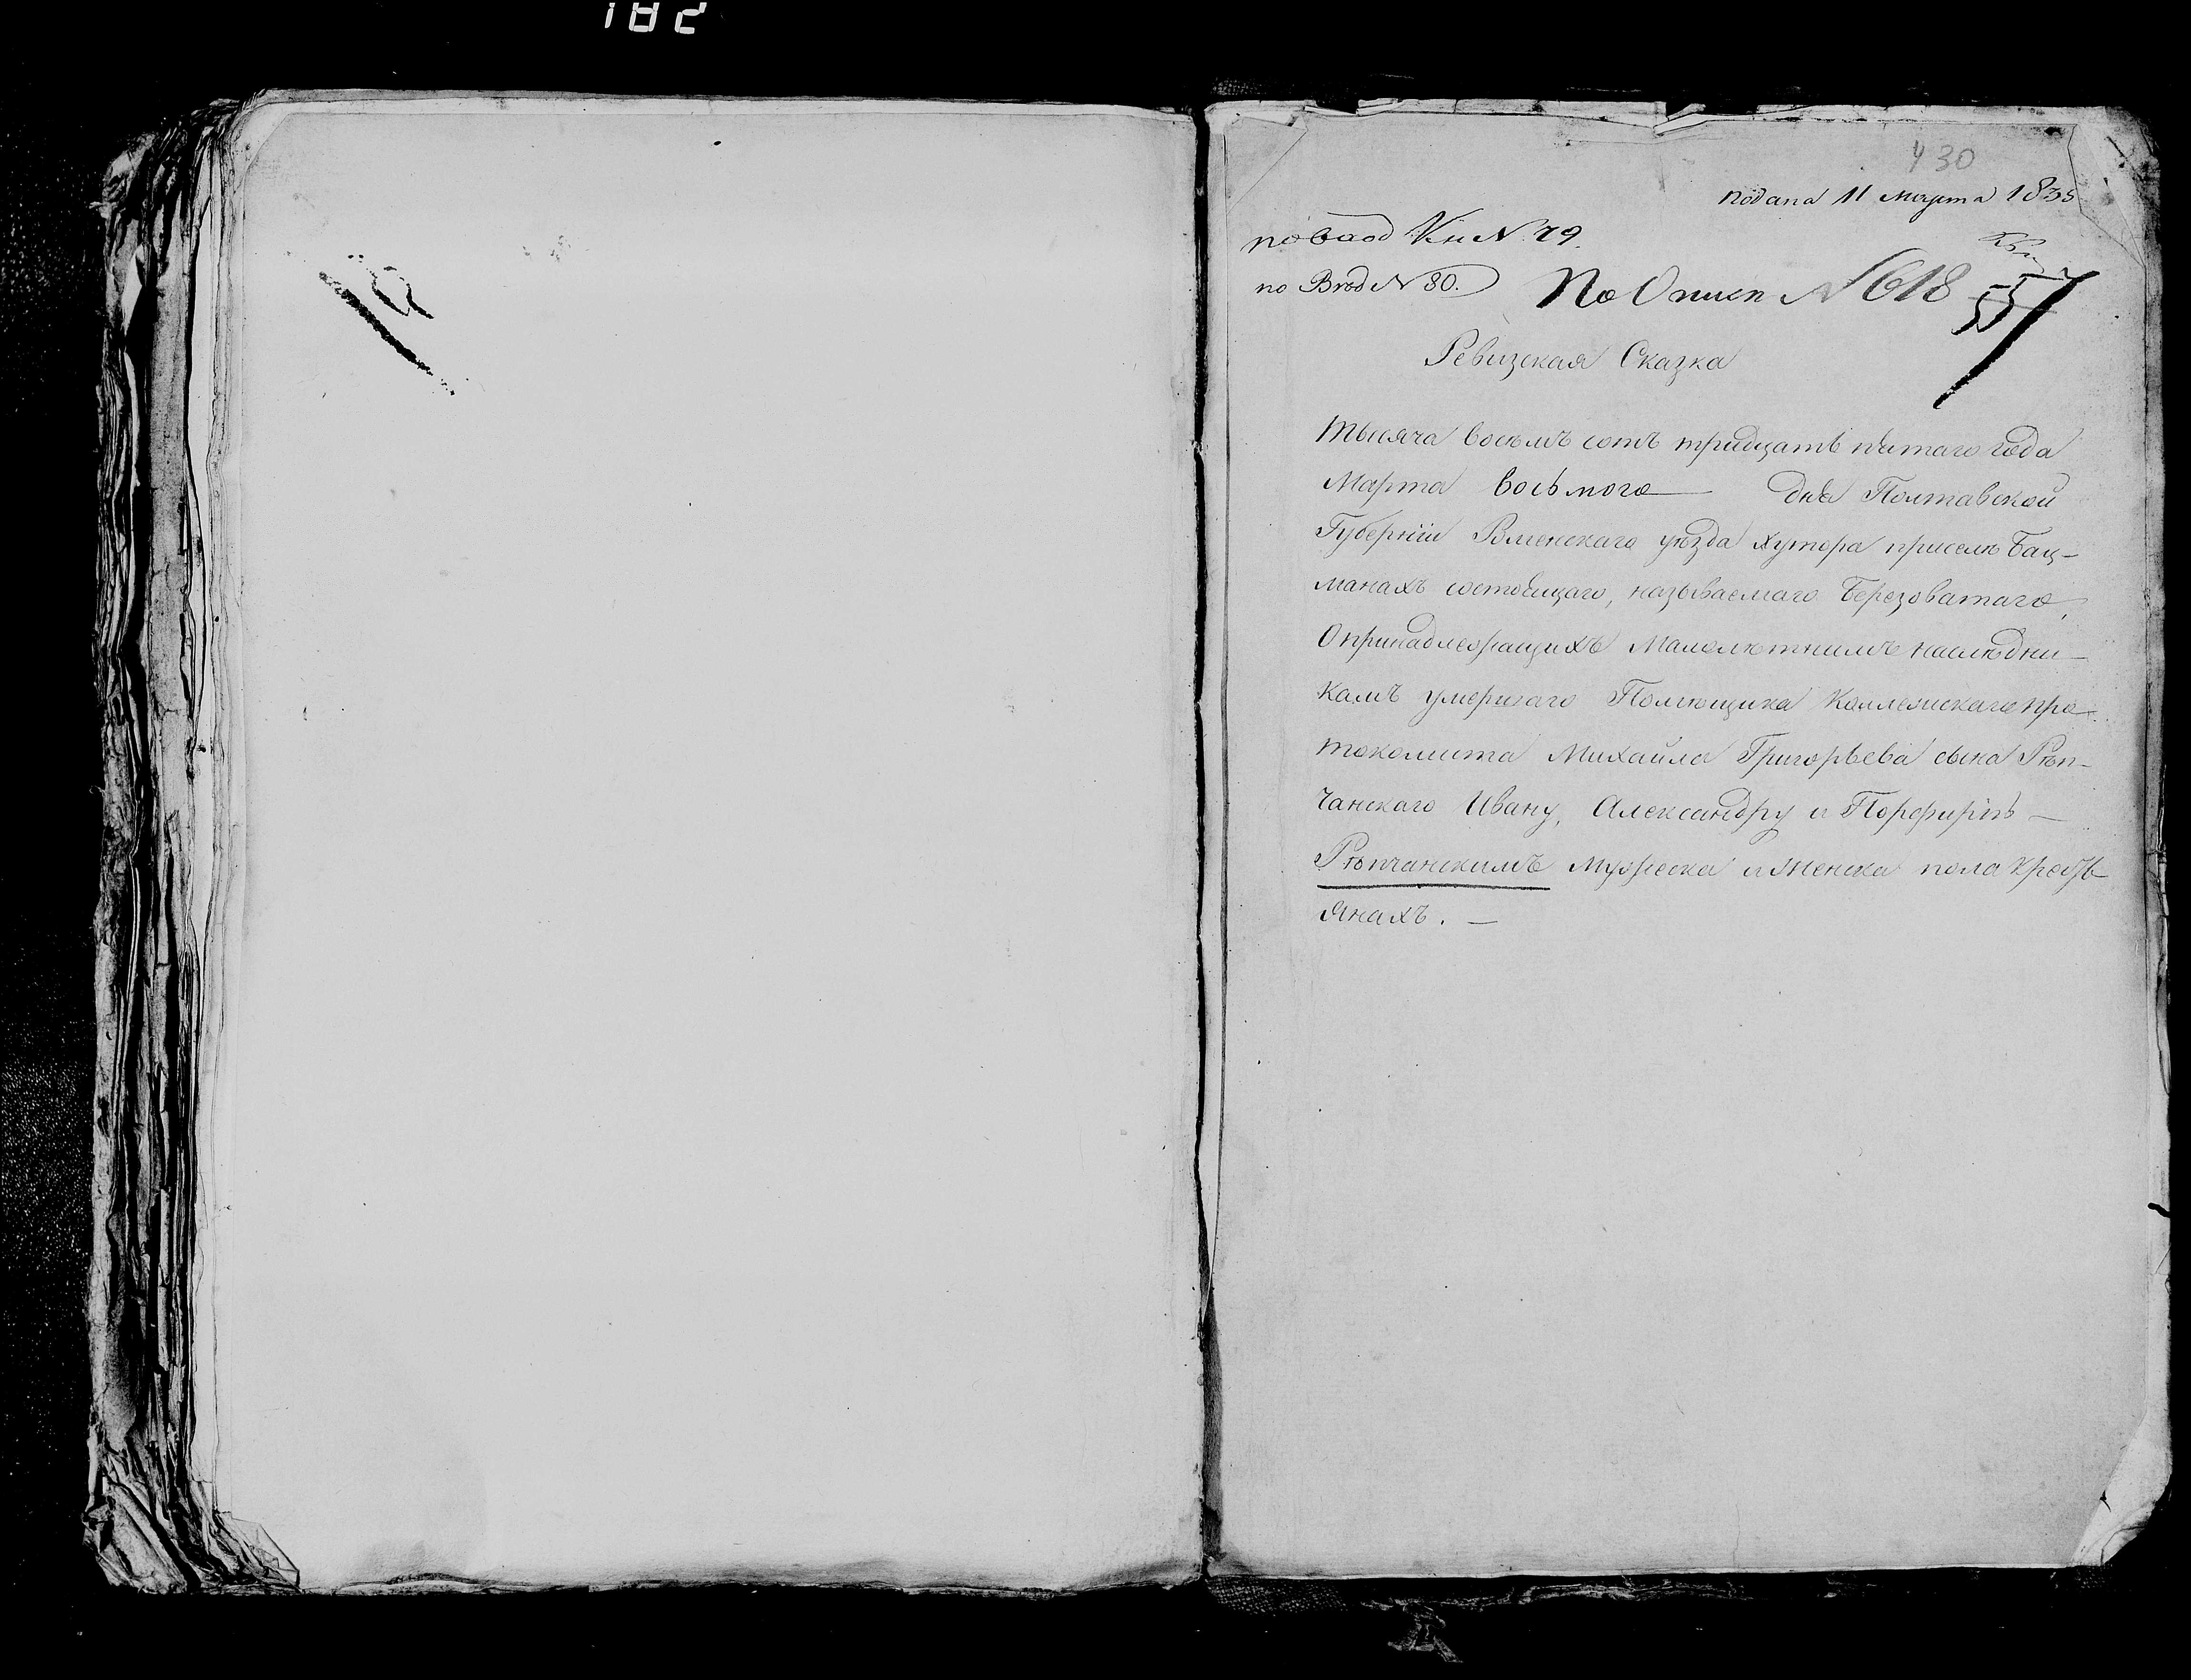 182
430
подана 11 марта 1835
по вход Кн N 79.
по Вѣд N 80.
По Описи N 618
55
Ревизская Сказка
Тысяча восемъ сотъ тридцать пятаго года
Марта восьмого дня Полтавской
Губерніи Роменскаго уѣзда хутора приселѣ Бац-
манахъ состоящаго, называемаго Березоватаго,
О принадлежащихъ Малолѣтнимъ наслѣдни-
камъ умершаго Помѣщика Коллежскаго про-
токолиста Михайла Григорьева сына Рѣп-
чанскаго Ивану, Александру и Порфирію
Рѣпчанскимъ мужеска и женска пола крестъ-
янахъ.